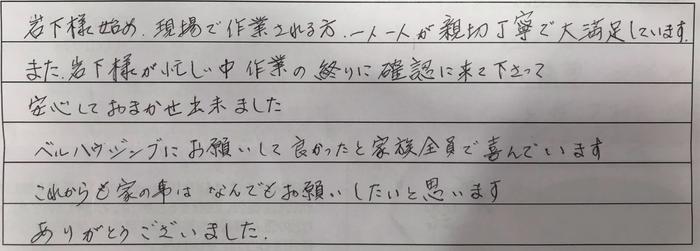 岩下様始め、現場で作業される方、一人一人が親切丁寧で大満足しています。
また、岩下様が忙しい中作業の終りに確認に来て下さって
安心しておまかせ出来ました
ベルハウジングにお願いして良かったと家族全員で喜んでいます
これからも家の事はなんでもお願いしたいと思います
ありがとうございました。